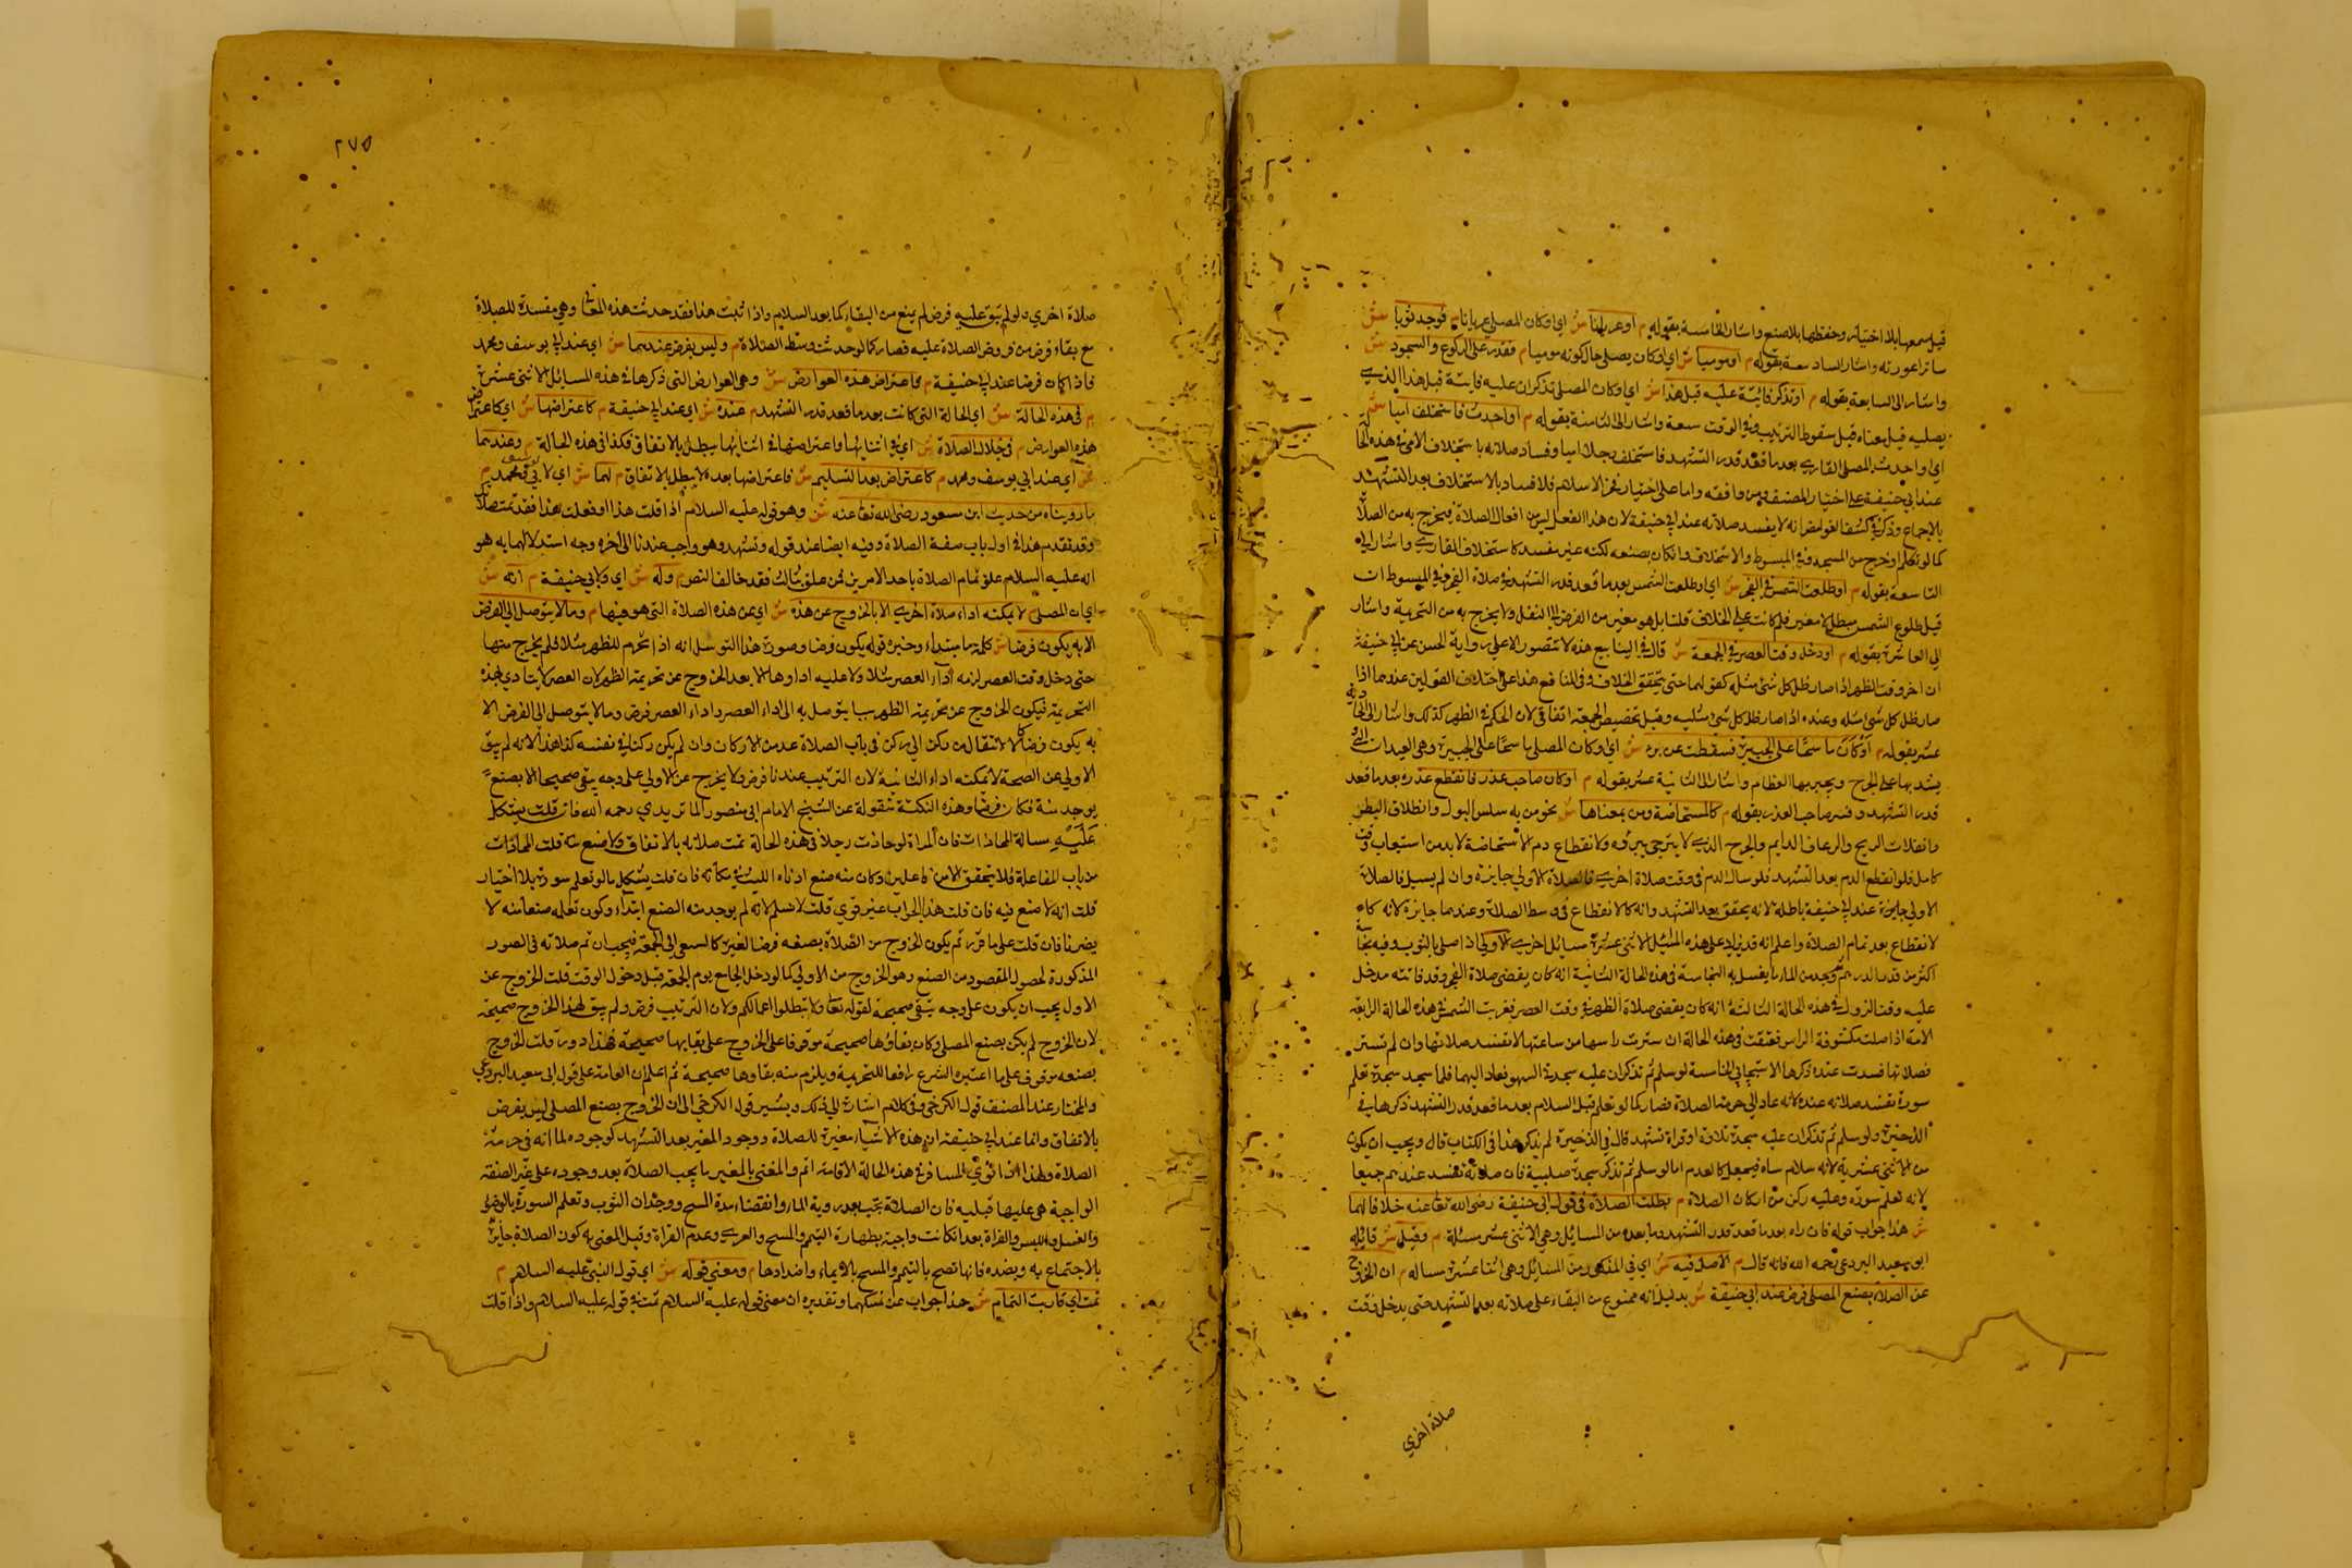 قيل سمعها بلا اختياره وحفظها بلا صنع واشار الى الخامسة بقوله م او عريانا ش اي او كان المصلي عريانا م فوجد ثوبا ش
ساترا عورته واشار الى السادسة بقوله م او موميا ش اي او كان يصلي حال كونه موميا م فقدر على الركوع والسجود ش
واشار الى السابعة بقوله م او تذكر فائتة عليه قبل هذا ش اي او كان المصلي تذكر ان عليه فايتة قبل هذا الذي
يصليه قيل معناه قبل سقوط الترتيب وفي الوقت سعة واشار الى الثامنة بقوله م او احدث فاستخلف اميا ش
اي او احدث المصلي القاري بعد ما قعد قدر التشهد فاستخلف رجلا اميا وفساد صلاته باستخلاف الامي في هذه الحا
عند ابي حنيفة على اختيار المصنف ومن وافقه واما على اختيار فخر الاسلام فلا فساد بالاستخلاف بعد التشهد
بالاجماع وذكر في كشف الغوامض انه لا يفسد صلاته عند ابي حنيفة لان هذا الفعل ليس من افعال الصلاة فيخرج به من الصلا
كما لو تكلم او خرج من المسجد وفي المبسوط والاستخلاف وان كان بصنعه لكنه غير مفسد كاستخلاف القاري واشار الى
التاسعة بقوله م او طلعت الشمس في الفجر ش اي او طلعت الشمس بعد ما قعد قدر التشهد في صلاة الفجر وفي المبسوط ان
قيل طلوع الشمس مبطل لا مغير فلم كانت على الخلاف قلنا بل هو مغير من الفرض الى النفل ولا يخرج به من التحريمة واشار
الى العاشرة بقوله م او دخل وقت العصر في الجمعة ش قال في الينابيع هذه لا تتصور الا على رواية الحسن عن ابي حنيفة
ان اخر وقت الظهر اذا صار ظل كل شئ مثله كقولهما حتى يتحقق الخلاف وفي المنافع هذا على اختلاف القولين عندهما اذا
صار ظل كل شئ مثله وعنده اذا صار ظل كل شئ مثليه وقيل تخصيص الجمعة اتفاقي لان الحكم في الظهر كذلك واشار الى الحادية
عشر بقوله م او كان ماسحا على الجبيرة فسقطت عن برء ش اي او كان المصلي ماسحا على الجبيرة وهي العيدان التي
يشد بها على الجرح ويجبر بها العظام واشار الى الثانية عشر بقوله م او كان صاحب عذر فانقطع عذره بعد ما قعد
قدر التشهد وفسر صاحب العذر بقوله م كالمستحاضة ومن بمعناها ش نحو من به سلس البول وانطلاق البطن
وانفلات الريح والرعاف الدايم والجرح الذي لا يترجى برؤه ولانقطاع دم الاستحاضة لا بد من استيعاب وقت
كامل فلو انقطع الدم بعد التشهد فلو سال الدم في وقت صلاة اخرى فالصلاة الاولى جايزة وان لم يسيل فالصلاة
الاولى جايزة عند ابي حنيفة باطلة لانه يتحقق بعد التشهد وانه كالانقطاع في وسط الصلاة وعندهما جايزة لانه كا
لانقطاع بعد تمام الصلاة واعلم انه قد زيد على هذه المسائل الاثنى عشرة مسايل اخرى الاولى اذا صلى بالثوب وفيه نجاسة
اكثر من قدر الدرهم ثم وجد من الماء ما يغسل به النجاسة في هذه الحالة الثانية انه كان يقضي صلاة الفجر وقد فاتته فدخل
عليه وقت الزوال في هذه الحالة الثالثة انه كان يقضي صلاة الظهر في وقت العصر فغربت الشمس في هذه الحالة الرابعة
الامة اذا صلت مكشوفة الراس فعتقت في هذه الحالة ان سترت راسها من ساعتها لا تفسد صلاتها وان لم تستر
فصلاتها فسدت عنده ذكرها الاسبيجابي الخامسة لو سلم ثم تذكر ان عليه سجدتي السهو فعاد اليهما فلما سجد سجدة تعلم
سورة تفسد صلاته عنده لانه عاد الى حرمة الصلاة فصار كما لو تعلم قبل السلام بعد ما قعد قدر التشهد ذكرها في
الذخيرة ولو سلم ثم تذكر ان عليه سجدة تلاوة او قراة تشهد قال في الذخيرة لم يذكر هذا في الكتاب قال ويجب ان يكون
من الاثنى عشرية لانه سلام ساه فيجعل كالعدم اما لو سلم ثم تذكر سجدة صلبية فان صلاته تفسد عندهم جميعا
لانه تعلم سورة وعليه ركن من اركان الصلاة م بطلت الصلاة في قول ابي حنيفة رضي الله تعا عنه خلافا لهما
ش هذا جواب قوله فان راه بعد ما قعد قدر التشهد وما بعده من المسايل وهي الاثنى عشر مسئلة م وقيل ش قائله
ابو سعيد البردعي رحمه الله فانه قال م الاصل فيه ش اي في المذكور من المسايل وهي اثنا عشرة مساله م ان الخروج
عن الصلاة بصنع المصلي فرض عند ابي حنيفة ش بدليل انه ممنوع من البقاء على صلاته بعد التشهد حتى يدخل وقت
صلاة اخري
٢٧٥
صلاة اخري ولو لم يبق عليه فرض لم يمنع من البقاء كما بعد السلام واذا ثبت هذا فقد حدثت هذه المعاني وهي مفسدة للصلاة
مع بقاء فرض من فروض الصلاة عليه فصار كما لو حدثت وسط الصلاة م وليس بفرض عندهما ش اي عند ابي يوسف ومحمد
فاذا كان فرضا عند ابي حنيفة م فاعتراض هذه العوارض ش وهي العوارض التي ذكرها في هذه المسائل الاثنى عشرة
م في هذه الحالة ش اي الحالة التي كانت بعد ما قعد قدر التشهد م عنده ش اي عند ابي حنيفة م كاعتراضها ش اي كاعتراض
هذه العوارض م في خلال الصلاة ش اي في اثنائها واعتراضها في اثنائها مبطل بالاتفاق فكذا في هذه الحالة م وعندهما
ش اي عند ابي يوسف ومحمد م كاعتراض بعد التسليم ش فاعتراضها بعده لا يبطل بالاتفاق م لهما ش اي لابي يوسف ومحمد م
ما رويناه من حديث ابن مسعود رضي الله تعا عنه ش وهو قوله عليه السلام اذا قلت هذا او فعلت هذا فقد تمت صلاتك
وقد تقدم هذا في اول باب صفة الصلاة وفيه ايضا عند قوله وتشهد وهو واجب عندنا الى اخره وجه استدلالهما به هو
انه عليه السلام علق تمام الصلاة باحد الامرين فمن علق بثالث فقد خالف النص م وله ش اي ولابي حنيفة م انه ش
اي ان المصلي م لا يمكنه اداء صلاة اخرى الا بالخروج عن هذه ش اي عن هذه الصلاة التي هو فيها م وما لا يتوصل الى الفرض
الا به يكون فرضا ش كلمة ما مبتداء وخبره قوله يكون فرضا وصورة هذا التوسل انه اذا تحرم للظهر مثلا فلم يخرج منها
حتى دخل وقت العصر لزمه اداء العصر مثلا ولا عليه اداوها الا بعد الخروج عن تحريمة الظهر لان العصر لا يتادى بهذه
التحريمة فيكون الخروج عن تحريمة الظهر سببا يتوصل به الى اداء العصر واداء العصر فرض وما لا يتوصل الى الفرض الا
به يكون فرضا كالانتقال من ركن الى ركن في باب الصلاة عد من الاركان وان لم يكن ركنا في نفسه كذا هذا لانه لم يبق
الاولى عن الصحة لا يمكنه اداء الثانية لان الترتيب عندنا فرض ولا يخرج عن الاولى على وجه يبقى صحيحا الا بصنع
يوجد منه فكان فرضا وهذه النكتة منقولة عن الشيخ الامام ابي منصور الماتريدي رحمه الله فان قلت يشكل
عليه مسالة المحاذاة فان المراة لو حاذت رجلا في هذه الحالة تمت صلاته بالاتفاق ولا صنع منه قلت المحاذات
من باب المفاعلة فلا يتحقق الا من فاعلين وكان منه صنع ادناه اللبث في مكانه فان قلت يشكل بما لو تعلم سورة بلا اختيار
قلت انه لا صنع فيه فان قلت هذا الجواب غير قوي قلت لا نسلم لانه لم يوجد منه الصنع ابتداء وكون تعلمه صنعا منه لا
يضرنا فان قلت على ما قرر تم يكون الخروج من الصلاة بصنعه فرضا لغيره كالسعي الى الجمعة فيجب ان تتم صلاته في الصور
المذكورة لحصول المقصود من الصنع وهو الخروج من الاولى كما لو دخل الجامع يوم الجمعة قبل دخول الوقت قلت الخروج عن
الاول يجب ان يكون على وجه يبقى صحيحة لقوله تعا ولا تبطلوا اعمالكم ولان الترتيب فرض ولم يبق لهذا الخروج صحيحة
لان الخروج لم يكن بصنع المصلي وكان بقاؤها صحيحة موقوفا على الخروج على بقايها صحيحة فهذا دور قلت الخروج
بصنعه موقوف على ما اعتبره الشرع رافعا للتحريمة ويلزم منه بقاوها صحيحة ثم اعلم ان العامة على قول ابي سعيد البردعي
والمختار عند المصنف قول الكرخي وفي كلامه اشارة الى ذلك ويشير قول الكرخي الى ان الخروج بصنع المصلي ليس بفرض
بالاتفاق وانما عند ابي حنيفة ان هذه الاشياء مغيرة للصلاة ووجود المغير بعد التشهد كوجوده لما انه في حرمة
الصلاة ولهذا اذا نوى المسافر في هذه الحالة الاقامة اتم والمغني بالمغير ما يجب الصلاة بعد وجوده على غير الصفة
الواجبة هي عليها قبليه فان الصلاة تجب بعد روية الماء وانقضاء مدة المسح ووجدان الثوب وتعلم السورة بالوضوء
والغسل واللبس والقراة بعد ان كانت واجبة بطهارة التيمم والمسح والعري وعدم القراة وقيل المعنى به كون الصلاة جايزة
بالاجتماع به وبضده فانها تصح بالتيمم والمسح بالايماء واضدادها م ومعنى قوله ش اي قول النبي عليه السلام م
تمت اي قاربت التمام ش هذا جواب عن تمسكهما وتقديره ان معنى قوله عليه السلام تمت في قوله عليه السلام واذا قلت